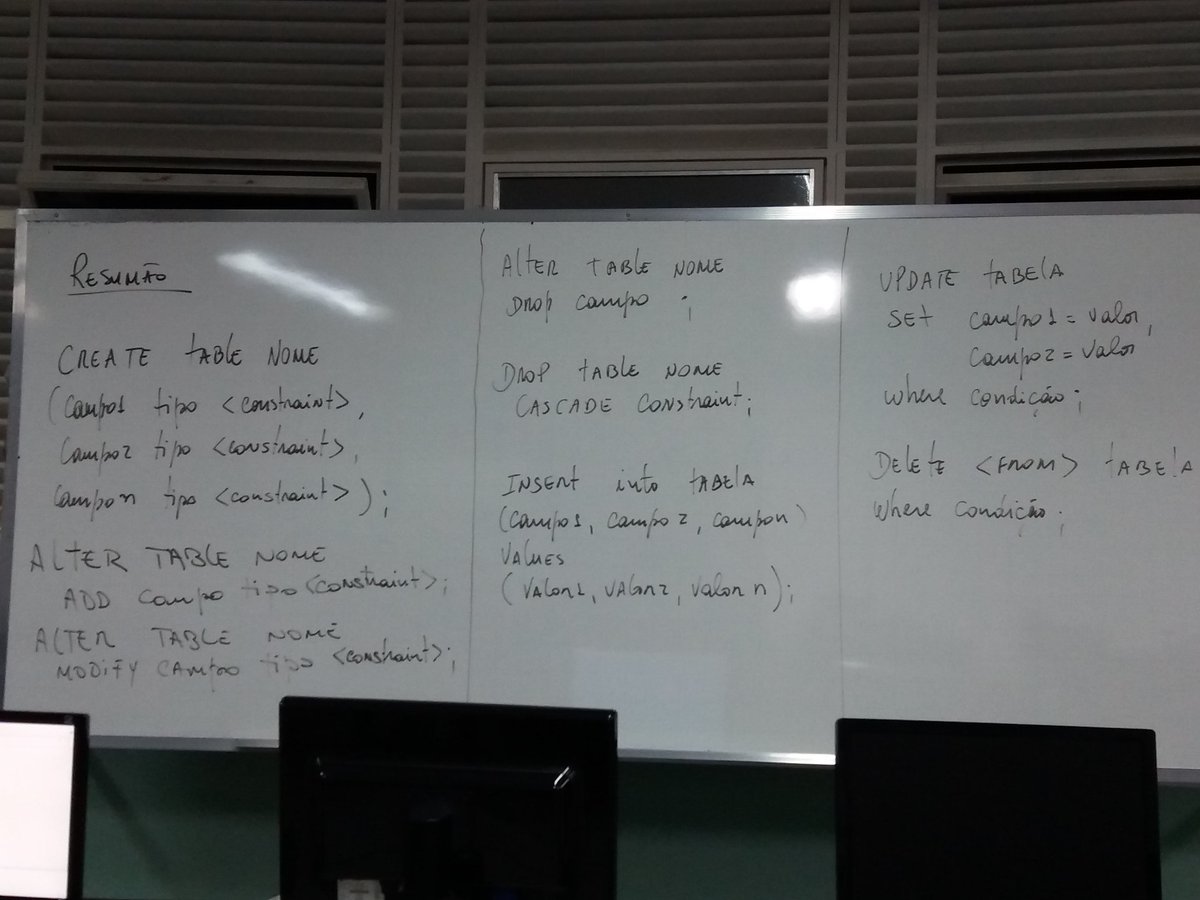 RESUMÃO
CREATE TABLE NOME
(campo1 tipo <constraint>,
campo2 tipo <constraint>,
campon tipo <constraint>);
ALTER TABLE NOME
ADD campo tipo <constraint>;
ALTER TABLE NOME
MODIFY CAMPO tipo <constraint>;
ALTER TABLE NOME
DROP campo ;
DROP TABLE NOME
CASCADE CONSTRAINT;
INSERT into TABELA
(campo1, campo2, campon)
VALUES
(VALOR1, VALOR2, VALOR n);
UPDATE TABELA
SET campo1 = valor,
campo2 = valor
where condição;
DELETE <FROM> TABELA
where condição;